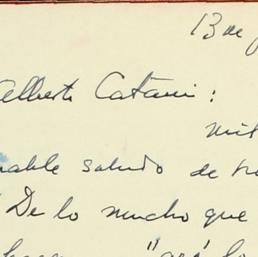 13 de
Alberto Catani:
mil
nable saludo de
De lo mucho que